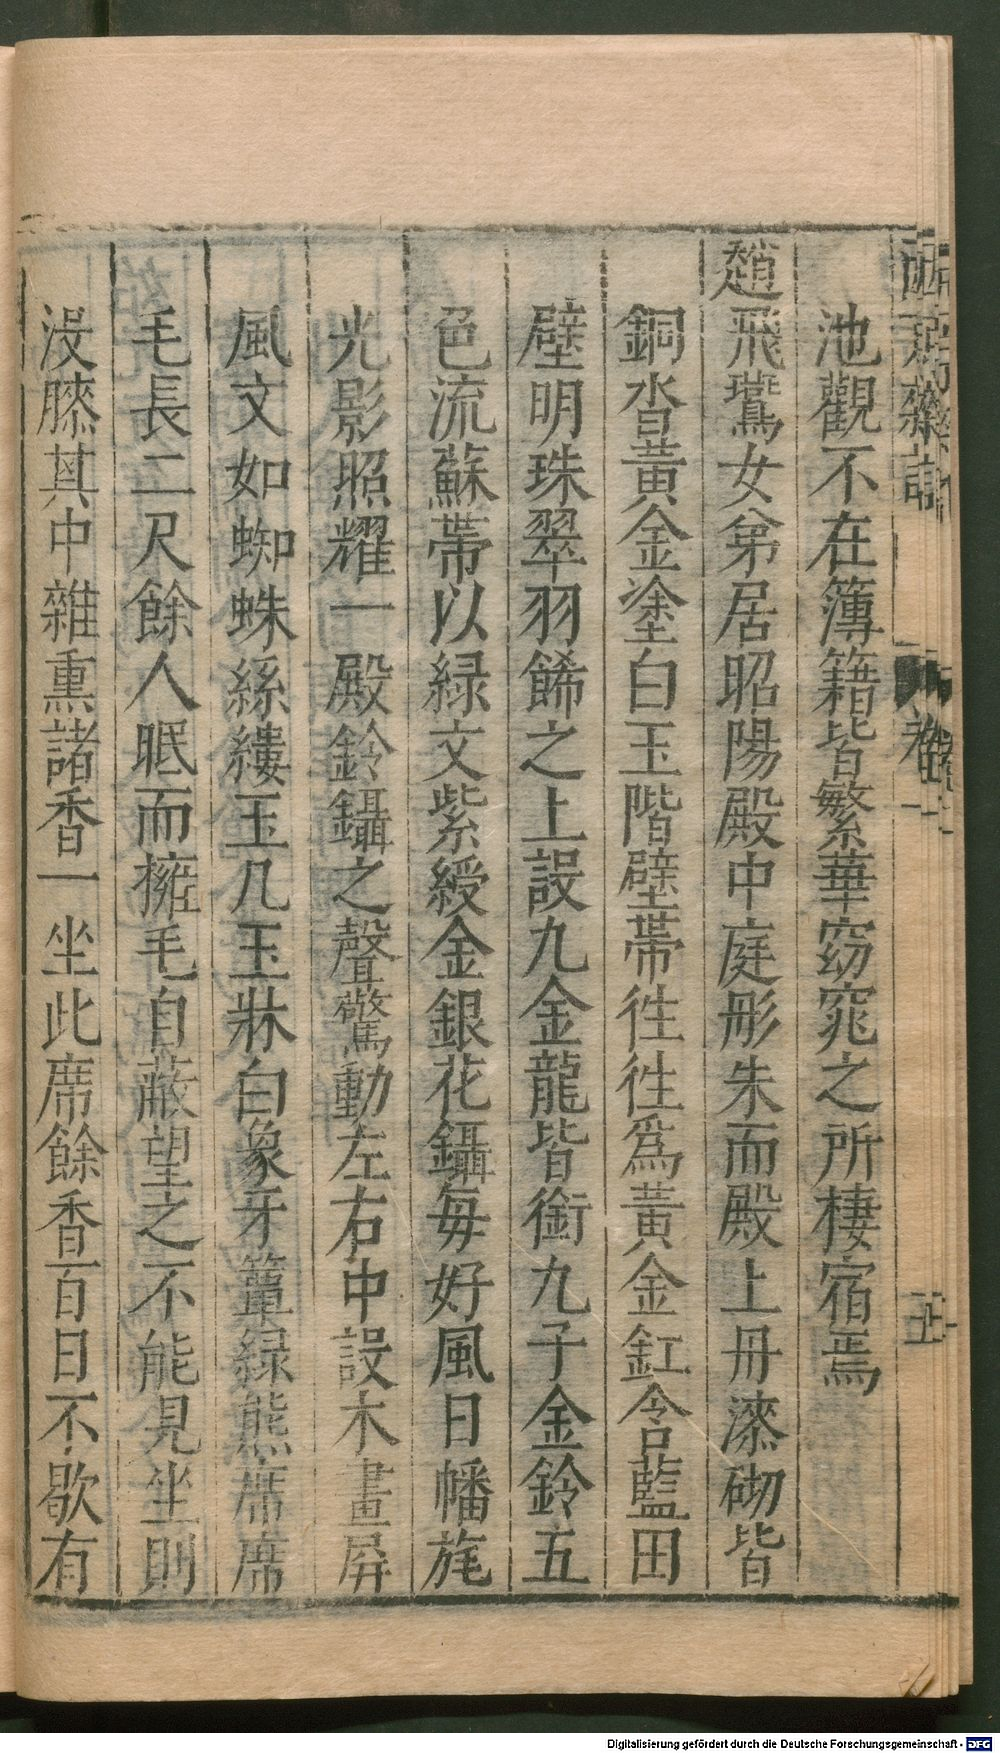 池觀不在簿籍皆繁華窈窕之所棲宿焉
趙飛鷰女弟居昭陽殿中庭彤朱而殿上丹漆砌皆
銅沓黃金塗白玉階壁帶徃徃爲黃金釭含藍田
壁明珠翠羽餙之上設九金龍皆銜九子金鈴五
色流蘇帶以綠文紫綬金銀花鑷每好風日幡旄
光影照耀一殿鈴鑷之聲驚動左右中設木畫屏
風文如蜘蛛絲縷玉几玉牀白象牙簟綠熊席席
毛長二尺餘人眠而擁毛自蔽望之不能見坐則
沒膝其中雜熏諸香一坐此席餘香百日不歇有
卷一
五
Digitalisierung gefördert durch die Deutsche Forschungsgemeinschaft - DFG